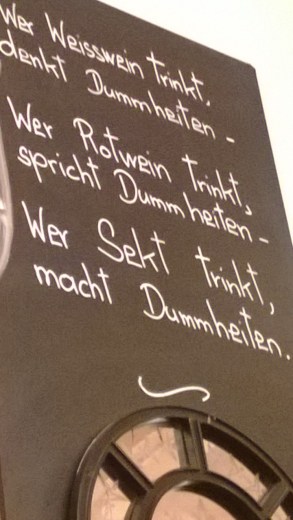 Wer Weisswein trinkt,
denkt Dummheiten -
Wer Rotwein trinkt,
spricht Dummheiten -
Wer Sekt trinkt,
macht Dummheiten.